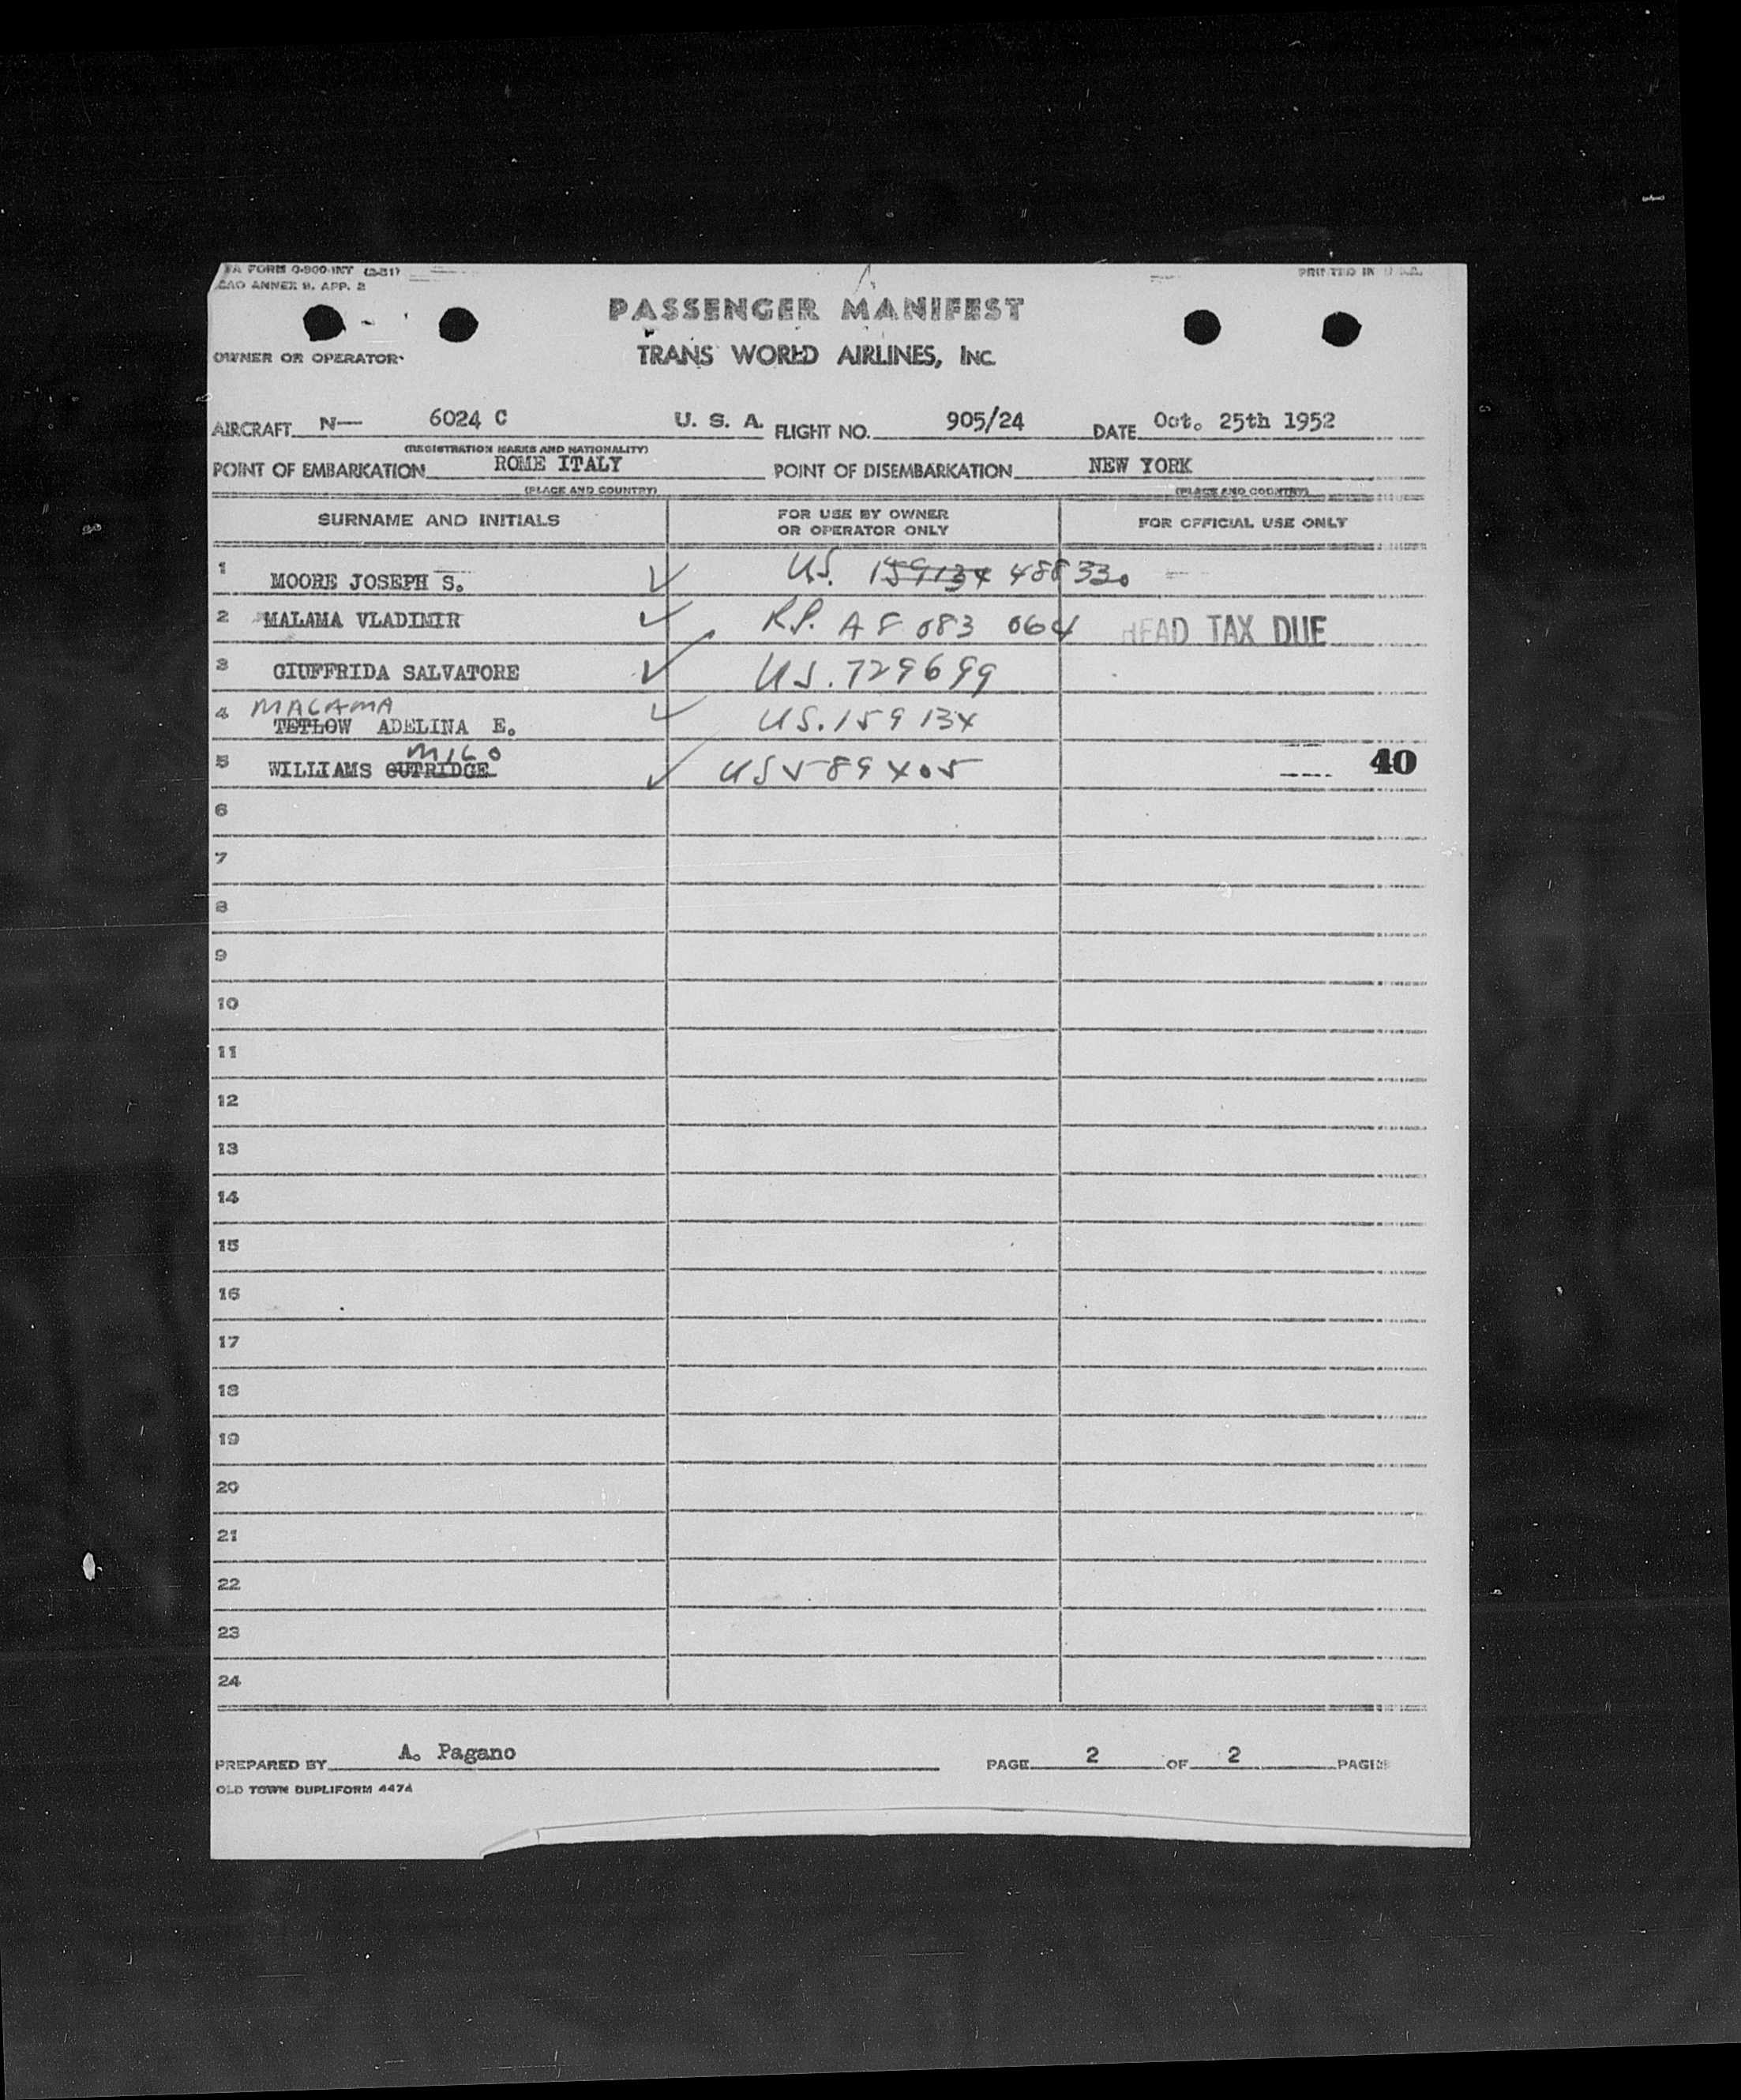 FORM 0-900-INT (2-51)
PRINTED IN U.S.A.
ICAO ANNEX 9, APP. 2
PASSENGER MANIFEST
OWNER OR OPERATOR
TRANS WORLD AIRLINES, INC.
AIRCRAFT N— 6024 C U. S. A. FLIGHT NO. 905/24 DATE Oct. 25th 1952
(REGISTRATION MARKS AND NATIONALITY)
POINT OF EMBARKATION ROME ITALY POINT OF DISEMBARKATION NEW YORK
(PLACE AND COUNTRY) (PLACE AND COUNTRY)
SURNAME AND INITIALS FOR USE BY OWNER OR OPERATOR ONLY FOR OFFICIAL USE ONLY
1 MOORE JOSEPH S. ✓ US. 159134 488330
2 MALAMA VLADIMIR ✓ R.P. A 8 083 064 HEAD TAX DUE
3 GIUFFRIDA SALVATORE ✓ US. 729699
MALAMA
4 TETLOW ADELINA E. ✓ US. 159134
MILO
5 WILLIAMS GUTRIDGE ✓ US 589405 40
6
7
8
9
10
11
12
13
14
15
16
17
18
19
20
21
22
23
24
PREPARED BY A. Pagano PAGE 2 OF 2 PAGES
OLD TOWN DUPLIFORM 4474